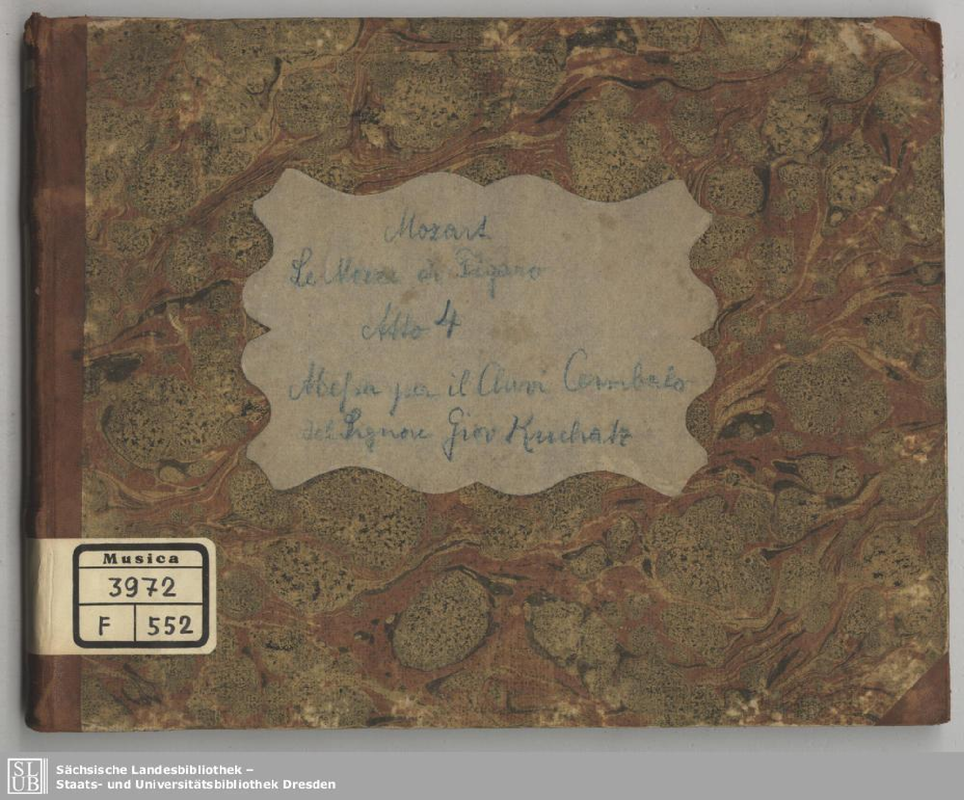 Mozart
Le Nozze di Figaro
Atto 4
Messa per il Clavi Cembalo
del Signore Giov Kucharz
Musica
3972
F 552
SLUB
Sächsische Landesbibliothek –
Staats- und Universitätsbibliothek Dresden